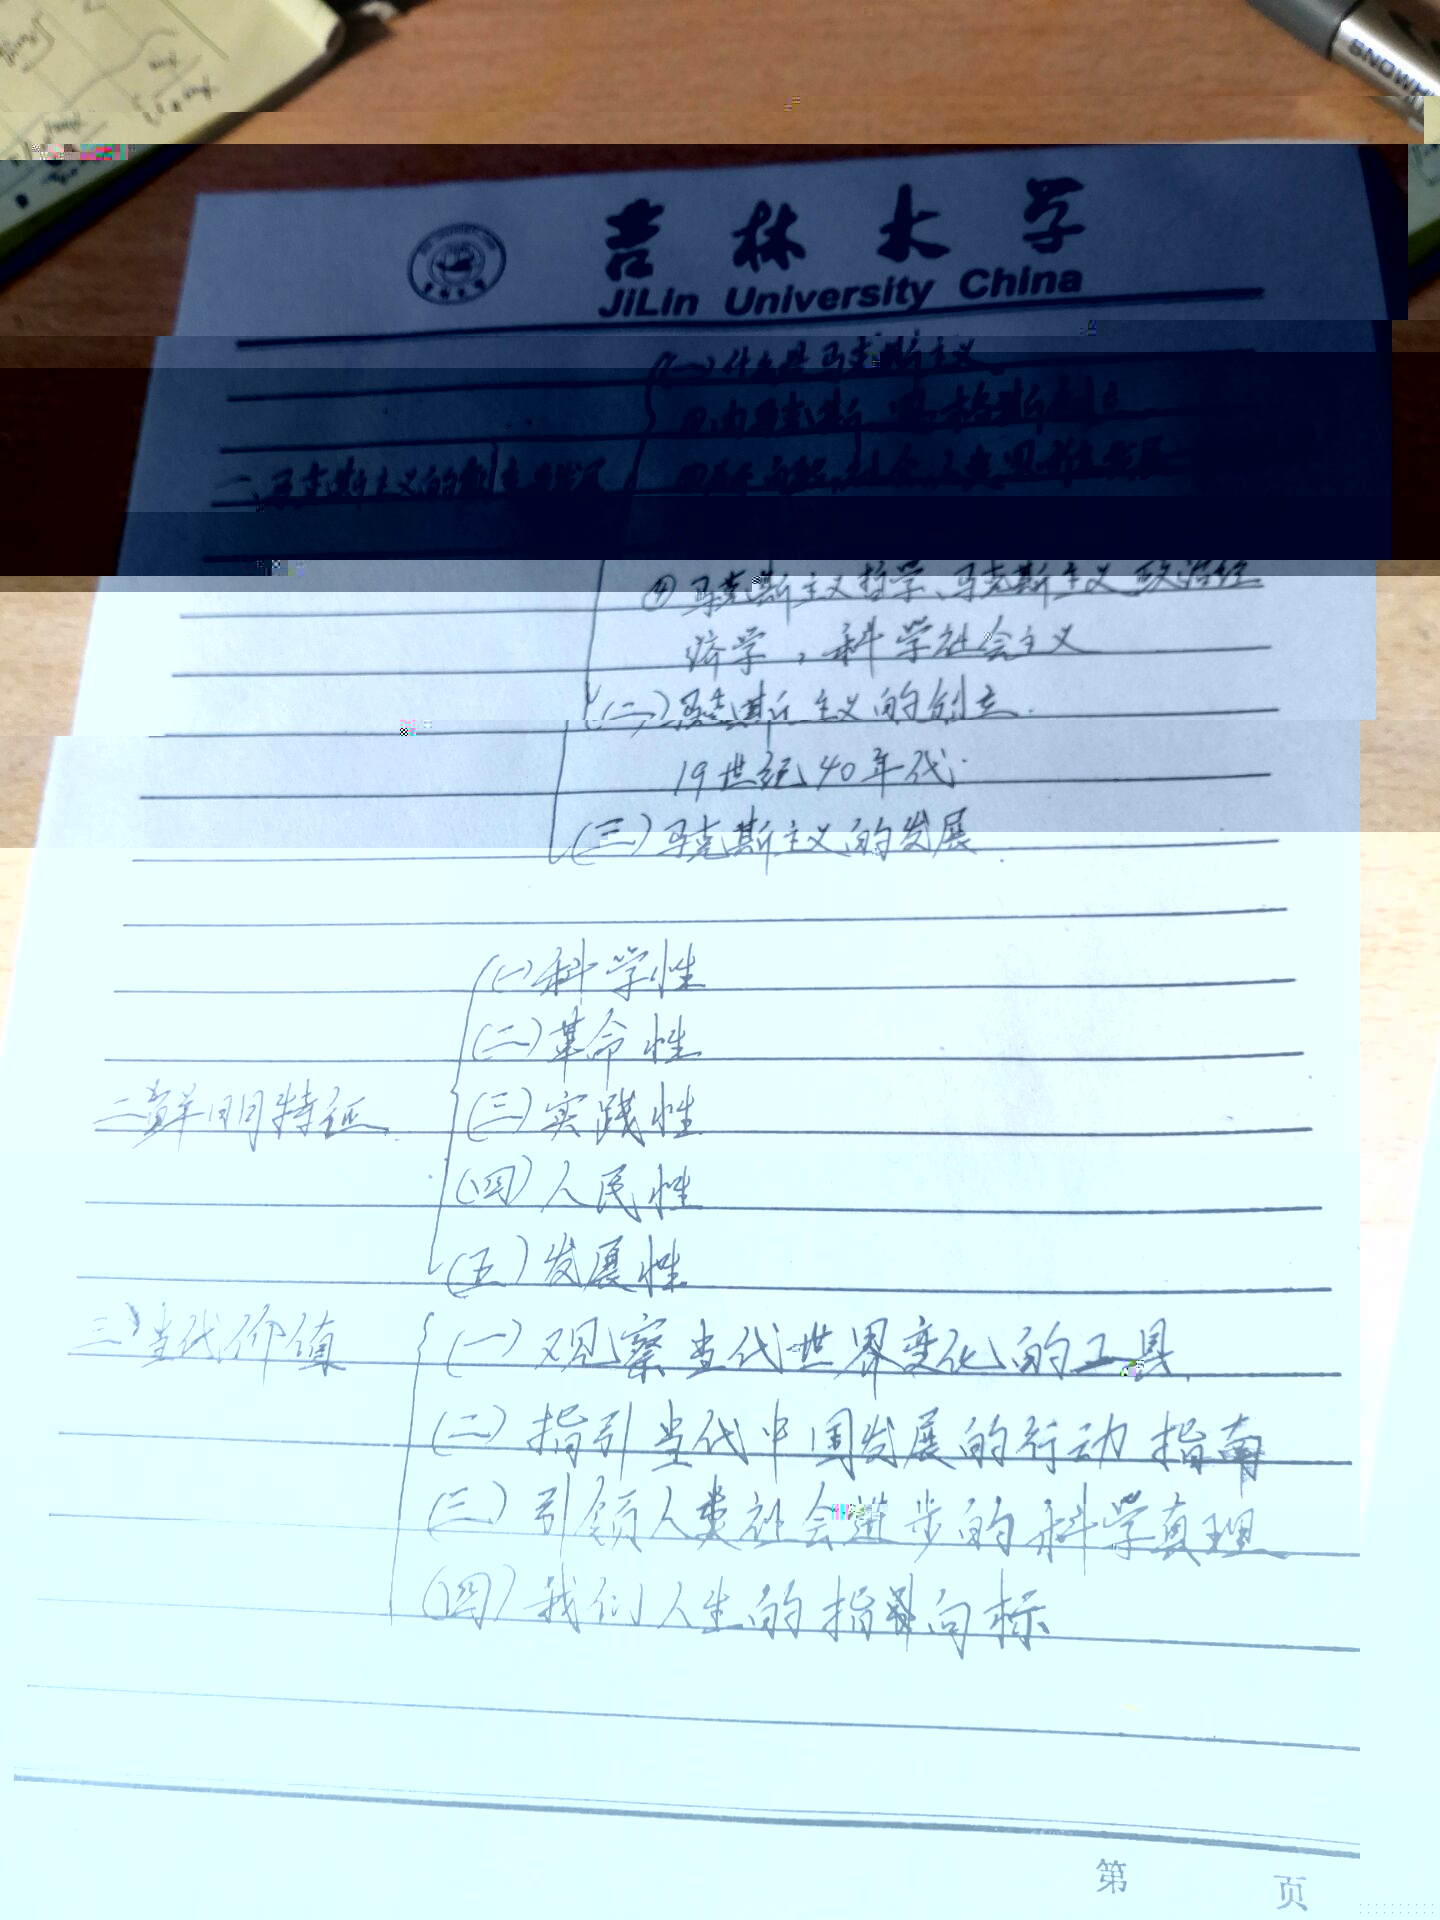 吉林大学
JiLin University China
(一)什么是马克思主义
①由马克斯、恩格斯创立
一、马克斯主义的创立与发展
④马克斯主义哲学、马克斯主义政治经
济学，科学社会主义
(二)马克斯主义的创立.
19世纪40年代.
(三)马克斯主义的发展
(一)科学性
(二)革命性
二鲜明特征
(三)实践性
(四)人民性
(五)发展性
三、当代价值
(一)观察当代世界变化的工具
(二)指引当代中国发展的行动指南
(三)引领人类社会进步的科学真理
(四)我们人生的指引向标
第 页
SNOWH